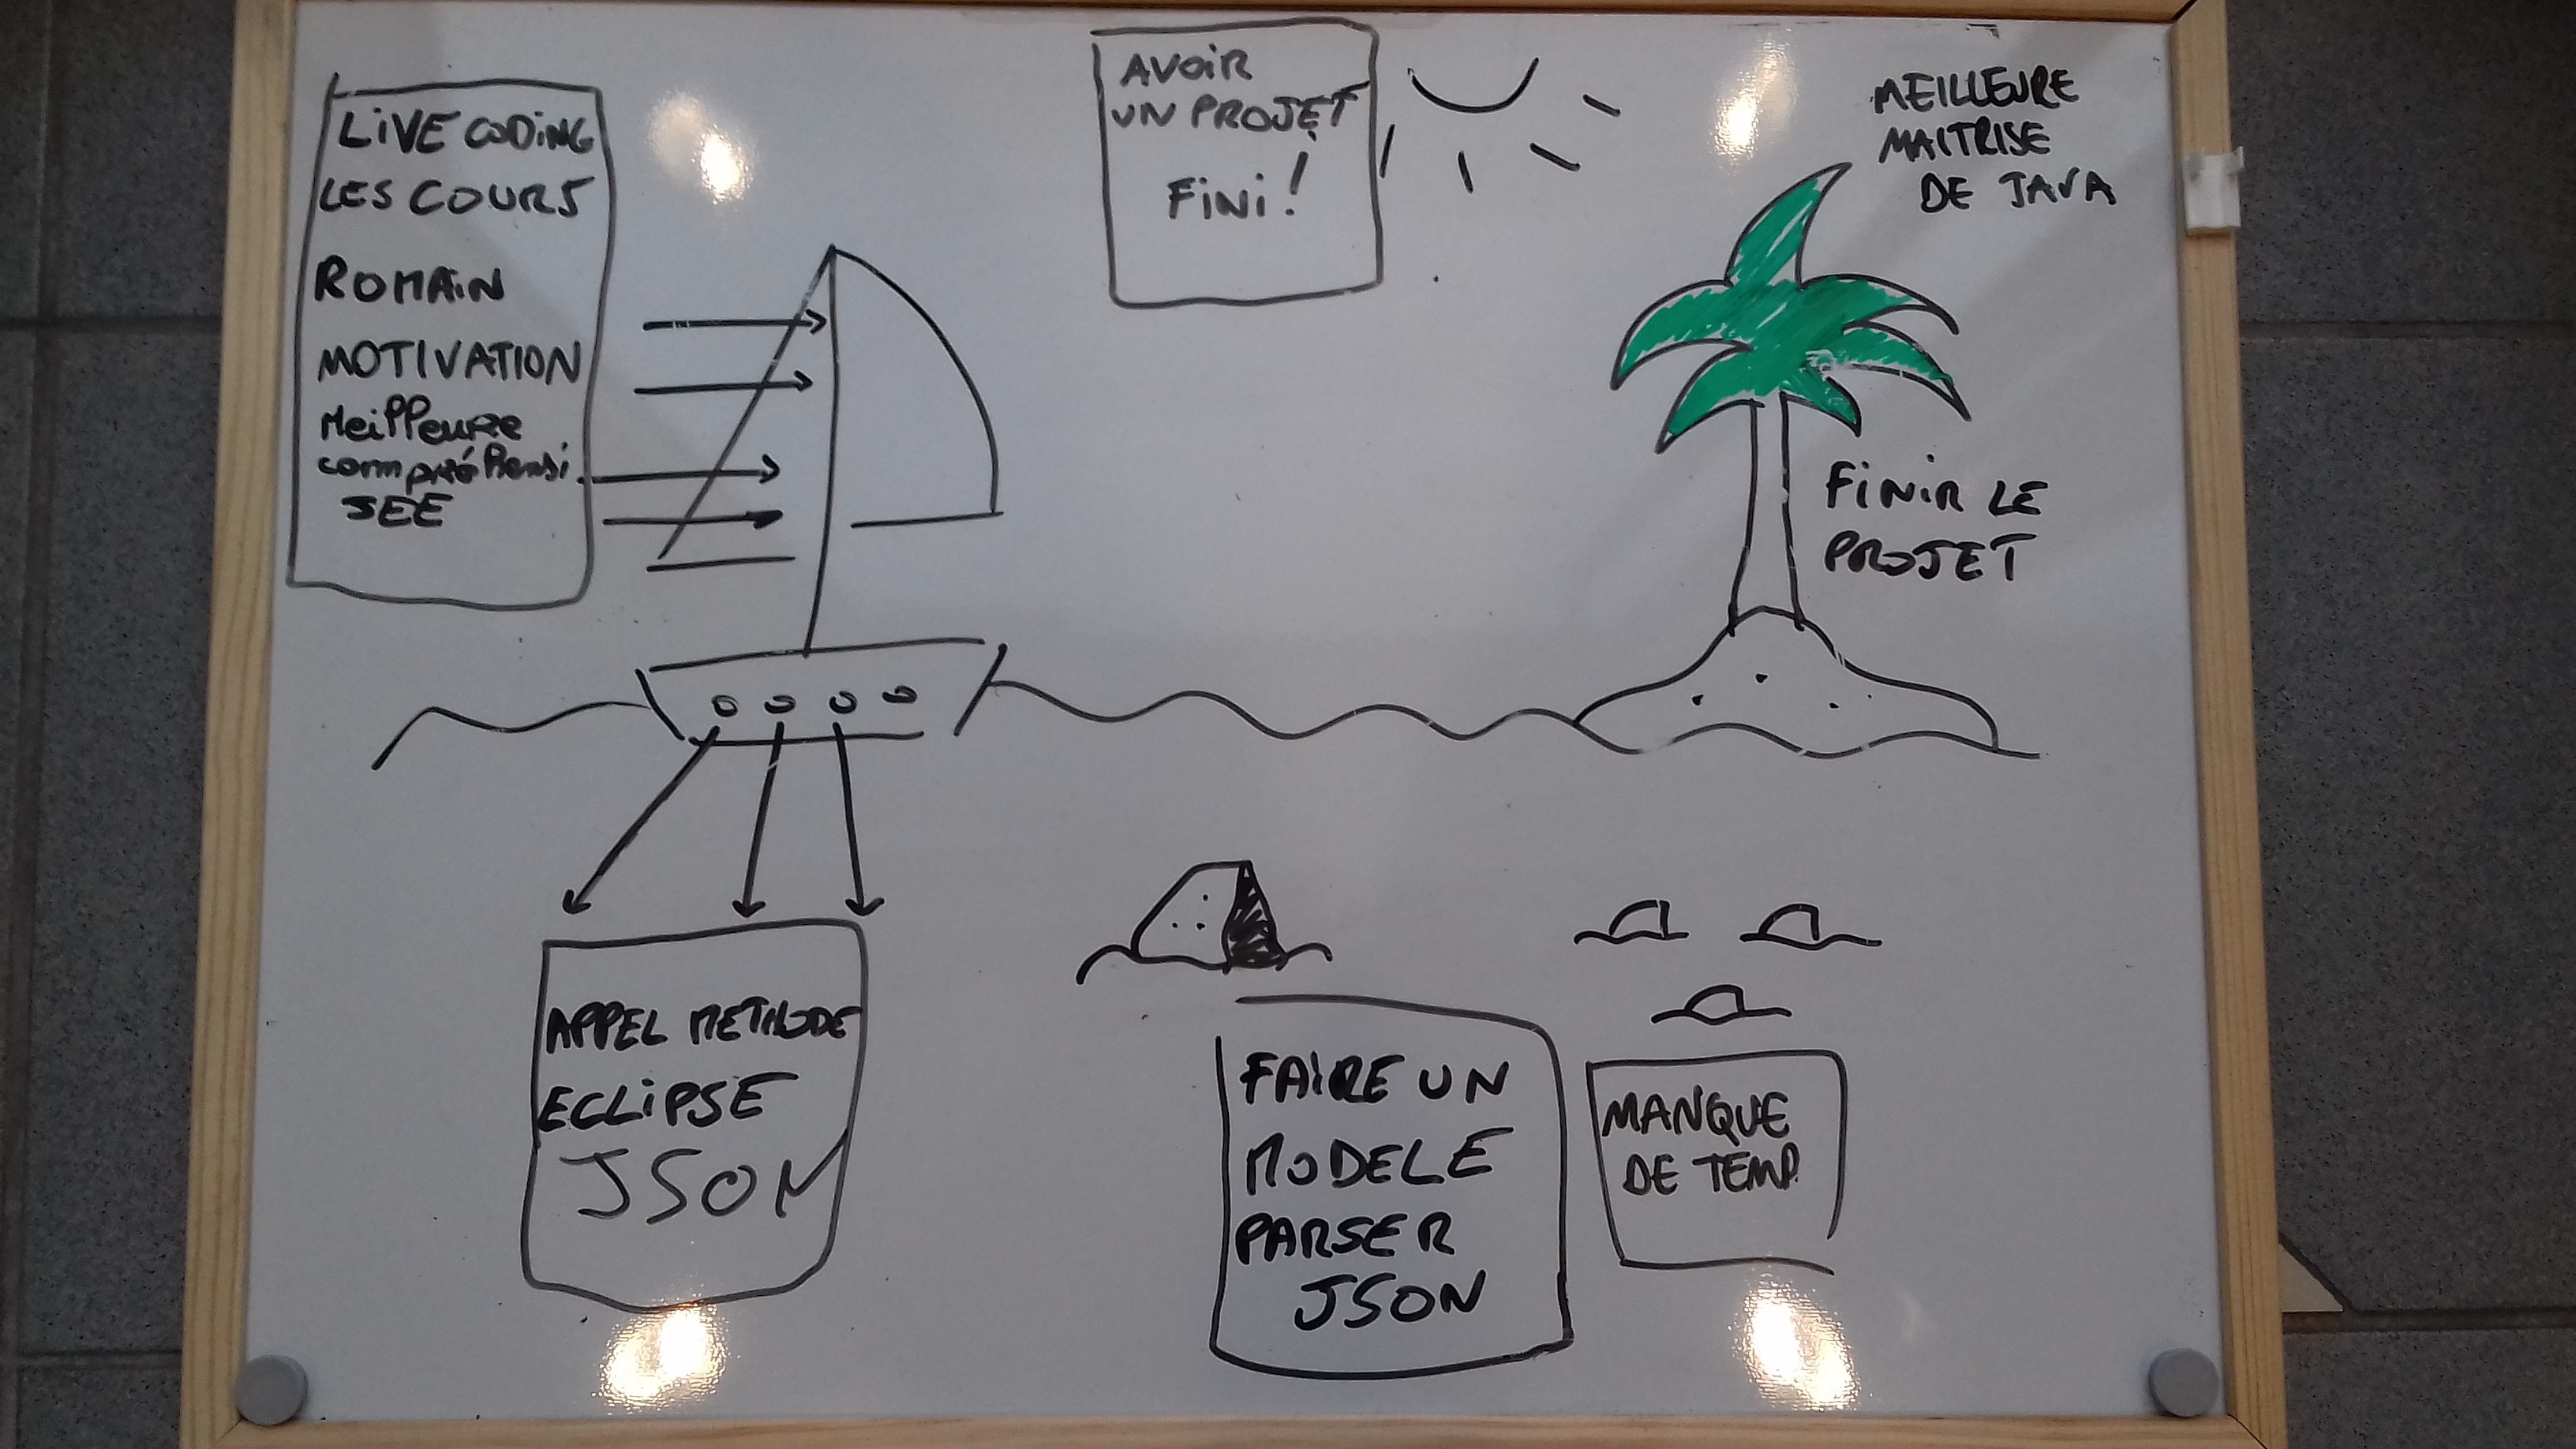 LiVE CODiNG
LES COURS
ROMAiN
MOTIVATION
Meilleure
compréhensi.
JEE
AVOiR
UN PROJET
FiNi!
MEILLEURE
MAITRISE
DE JAVA
FiNiR LE
PROJET
APPEL METHODE
ECLiPSE
JSON
FAIRE UN
MODELE
PARSER
JSON
MANQUE
DE TEMP.